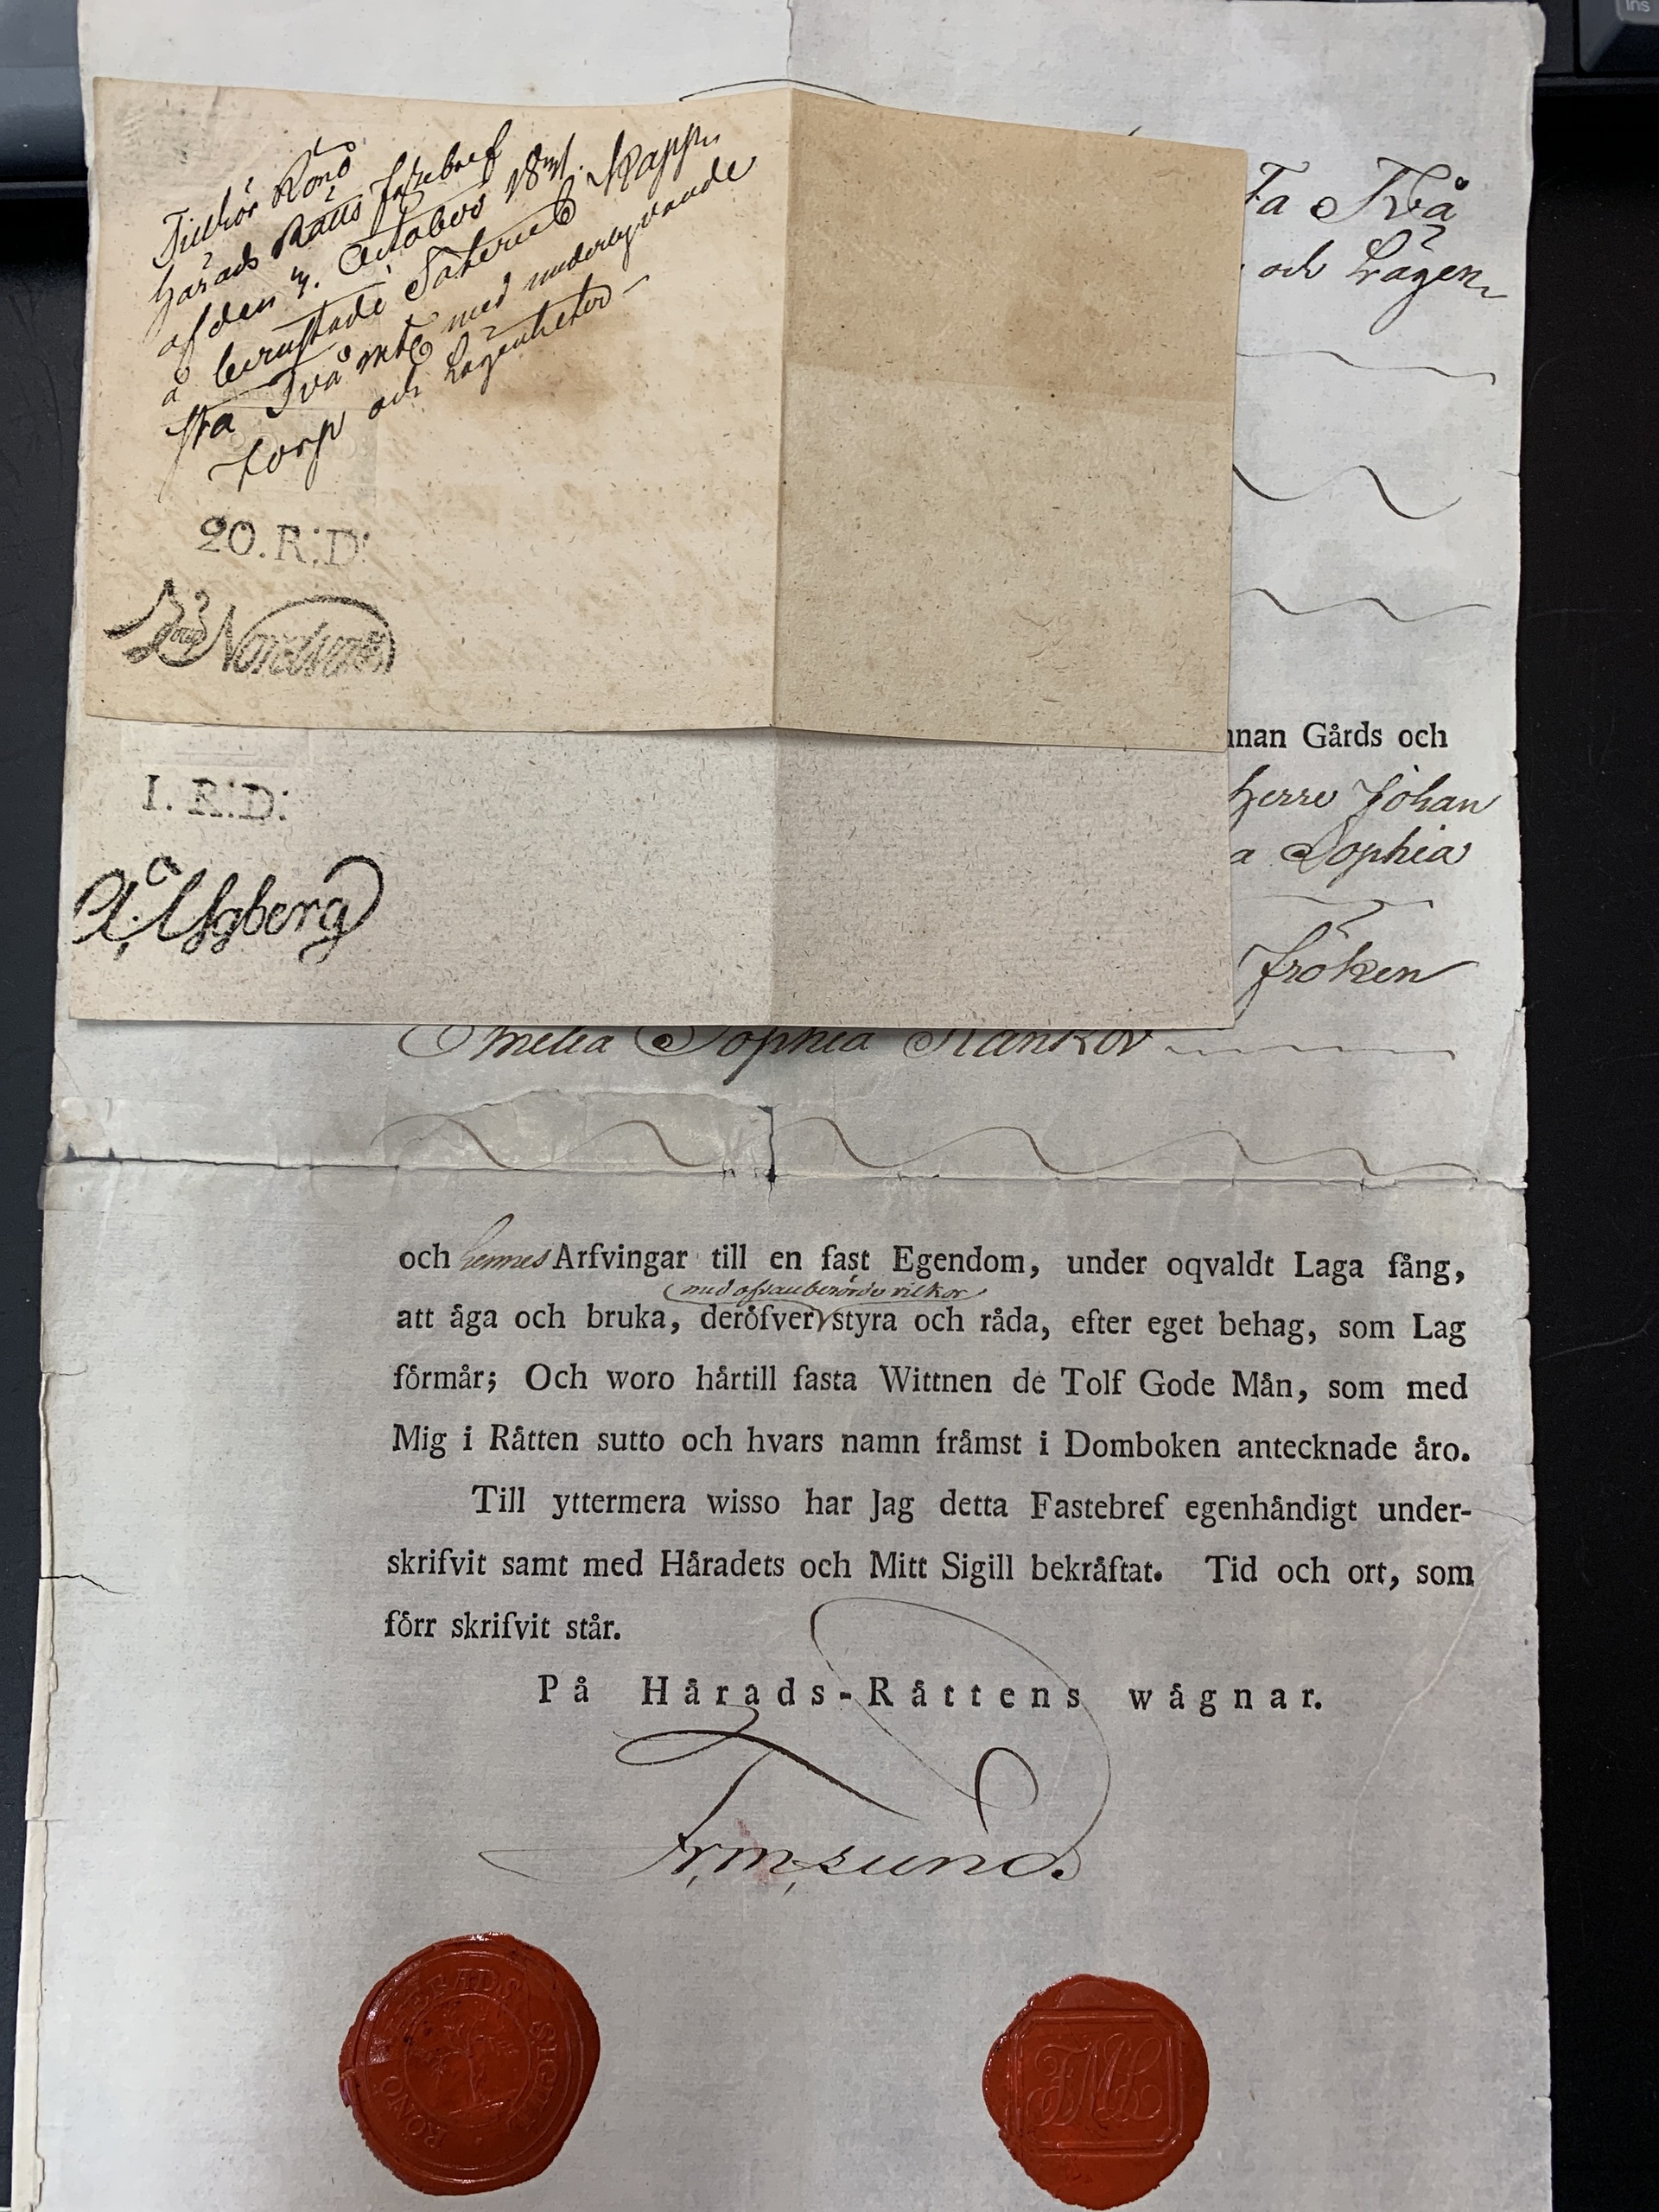 Tillhör Rönö
Härads Rätts fastebref
af den 3. October
å berustade Säteriet Kapp
sta Två mtl med underlydande
torp och Lägenheter
20. R:D:
Nordwall
1. R:D:
ta Två
och Lägen
nnan Gårds och
Herre Johan
a Sophia
Fröken
Amelia Sophia
och hennes Arfvingar till en fast Egendom, under oqvaldt Laga fång,
med ofvanberörde vilkor
att äga och bruka, deröfver styra och råda, efter eget behag, som Lag
förmår; Och woro härtill fasta Wittnen de Tolf Gode Män, som med
Mig i Rätten sutto och hvars namn främst i Domboken antecknade äro.
Till yttermera wisso har Jag detta Fastebref egenhändigt under-
skrifvit samt med Häradets och Mitt Sigill bekräftat. Tid och ort, som
förr skrifvit står.
På Härads-Rättens wägnar.
RÖNÖ HÄRADS SIGILL